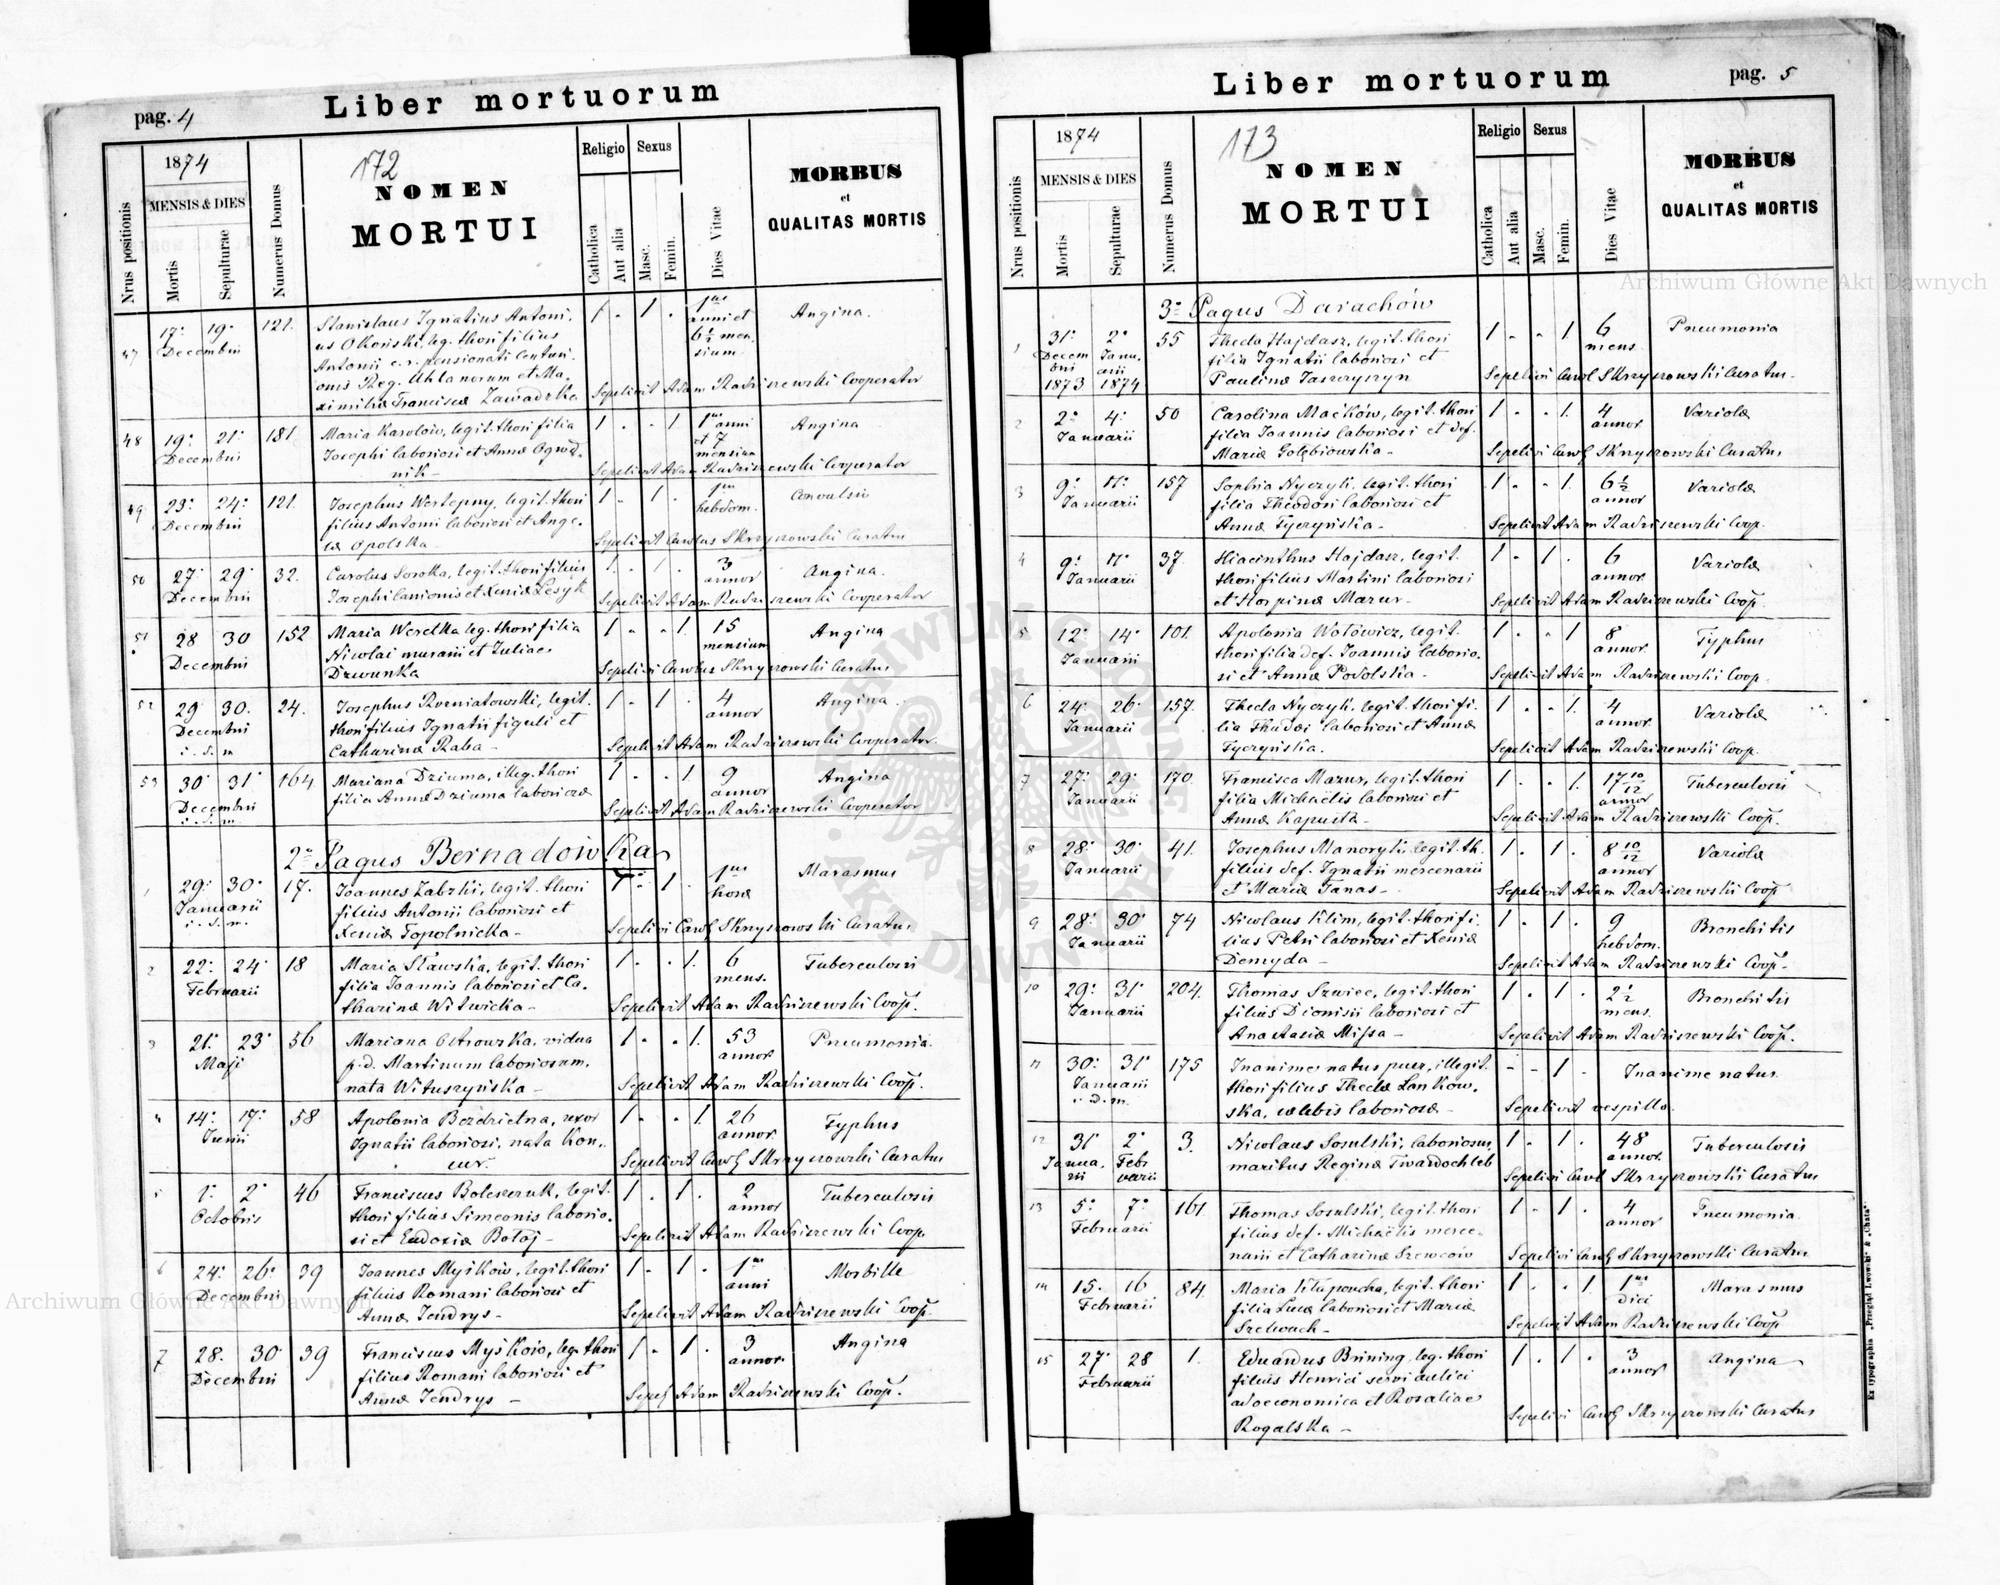 pag. 4
Liber mortuorum
1874
172
Nrus positionis
MENSIS & DIES
Mortis
Sepulturae
Numerus Domus
NOMEN
MORTUI
Religio
Sexus
Catholica
Aut alia
Masc.
Femin.
Dies Vitae
MORBUS
et
QUALITAS MORTIS
47 17. 19. 121. Stanislaus Ignatius Antoni 1 . 1 . 1 us Angina.
Decembri us Okoński, leg. thori filius anni et
Antonii c. r. pensionati Centuri 6 1/2 men
onis Reg. Uhlanorum et Ma sium
ximiliæ Francisæ Zawadzka Sepelivit Adam Radziszewski Cooperator
48 19. 21. 181. Maria Karolów, legit. thori filia 1 . . 1 1 us anni Angina
Decembri Josephi laboriosi et Annæ Ogrod et 7 mensium
nik Sepelivit Adam Radziszewski Cooperator
49 23. 24. 121. Josephus Wertepny, legit. thori 1 . 1 . 1 us Convulsii
Decembri filius Antoni laboriosi et Ange hebdom.
læ Opolska Sepelivit Carolus Skrzyszowski Curatus
50 27. 29. 32. Carolus Soroka, legit. thori filius 1 . 1 . 3 Angina.
Decembri Josephi lanionis et Xeniæ Lesyk annor
Sepelivit Adam Radziszewski Cooperator
51 28 30 152 Maria Weretka leg. thori filia 1 . . 1. 15 Angina
Decembri Nicolai murarii et Juliae mensium
Dzwonka Sepelivi Carolus Skrzyszowski Curatus
52 29 30. 24. Josephus Rozniatowski, legit. 1 . 1 . 4 Angina
Decembri thori filius Ignatii figuli et annor
i. d. m Catharinæ Raba - Sepelivit Adam Radziszewski Cooperator
53 30 31 164. Mariana Dziuma, illeg. thori 1 . . 1. 9 Angina
Decembri filia Annæ Dziuma laboriosæ annor
i. d. m. Sepelivit Adam Radziszewski Cooperator
2o Pagus Bernadówka
1 29. 30. 17. Joannes Zabski, legit. thori 1 . 1 . 1 us Marasmus
Januarii filius Antonii laboriosi et horæ
i. d. m. Xeniæ Topolnicka - Sepelivi Carol Skrzyszowski Curatus
2 22. 24. 18 Maria Sławska, legit. thori 1 . . 1. 6 Tuberculosis
Februarii filia Joannis laboriosi et Ca mens.
tharinæ Witwicka - Sepelivit Adam Radziszewski Coop.
3 21. 23. 56 Mariana Ostrowska, vidua 1 . . 1. 53 Pneumonia.
Maji p. d. Martinum laboriosum, annor
nata Wituszyńska - Sepelivit Adam Radziszewski Coop.
4 14. 17. 58 Apolonia Bezdzietna, uxor 1 . . 1. 26 Typhus
Junii Ignatii laboriosi, nata Kon annor.
ur. Sepelivit Carol Skrzyszowski Curatus
5 1. 2. 46 Franciscus Boleszczuk, legit. 1 . 1 . 2 Tuberculosis
Octobris thori filius Simeonis laborio annor
si et Eudoxiæ Bołaj - Sepelivit Adam Radziszewski Coop.
6 24. 26. 39 Joannes Myśków, legit. thori 1 . 1 . 1 us Morbille
Decembri filius Romani laboriosi et anni
Annæ Jendrys - Sepelivit Adam Radziszewski Coop.
7 28. 30 39 Franciscus Myśków, leg. thori 1 . 1 . 3 Angina
Decembri filius Romani laboriosi et annor.
Annæ Jendrys - Sepel Adam Radziszewski Coop.
Liber mortuorum
pag. 5
1874
173
Nrus positionis
MENSIS & DIES
Mortis
Sepulturae
Numerus Domus
NOMEN
MORTUI
Religio
Sexus
Catholica
Aut alia
Masc.
Femin.
Dies Vitae
MORBUS
et
QUALITAS MORTIS
3o Pagus Darachów
1 31. 2. 55 Thecla Hajdasz, legit. thori 1 . . 1 6 Pneumonia
Decem Janu filia Ignatii laboriosi et mens.
bri arii Paulinæ Jaszczyszyn Sepelivi Carol Skrzyszowski Curatus
1873 1874
2 2. 4. 50 Carolina Maćków, legit. thori 1 . . 1. 4 Variolæ
Januarii filia Joannis laboriosi et def. annor
Mariæ Gołębiowska - Sepelivi Carol Skrzyszowski Curatus
3 9. 11. 157 Sophia Nyczyk, legit. thori 1 . . 1. 6 1/2 Variolæ
Januarii filia Theodori laboriosi et annor
Annæ Tyczyńska - Sepelivit Adam Radziszewski Coop.
4 9. 11. 37 Hiacinthus Hajdasz, legit. 1 . 1 . 6 Variolæ
Januarii thori filius Martini laboriosi annor
et Horpinæ Mazur - Sepelivit Adam Radziszewski Coop.
5 12. 14. 101. Apolonia Wołowicz, legit. 1 . . 1 8 Typhus
Januarii thori filia def. Joannis laborio annor.
si et Annæ Podolska - Sepelivit Adam Radziszewski Coop.
6 24. 26. 157. Thecla Nyczyk, legit. thori fi 1 . . 1. 4 Variolæ
Januarii lia Thadæi laboriosi et Annæ annor.
Tyczyńska. Sepelivit Adam Radziszewski Coop.
7 27. 29. 170. Francisca Mazur, legit. thori 1 . . 1. 17 10/12 Tuberculosis
Januarii filia Michaëlis laboriosi et annor
Annæ Kapusta - Sepelivit Adam Radziszewski Coop.
8 28. 30. 41. Josephus Manoryk, legit. th. 1 . 1 . 8 10/12 Variolæ
Januarii filius def. Ignatii mercenarii annor
et Mariæ Tanas - Sepelivit Adam Radziszewski Coop
9 28. 30. 74 Nicolaus Klim, legit. thori fi 1 . 1 . 9 Bronchitis
Januarii lius Petri laboriosi et Xeniæ hebdom.
Demyda - Sepelivit Adam Radziszewski Coop.
10 29. 31. 204. Thomas Szwiec, legit. thori 1 . 1 . 2 1/2 Bronchitis
Januarii filius Dionisii laboriosi et mens.
Anastasiæ Missa - Sepelivit Adam Radziszewski Coop.
11 30. 31. 175 Inanime natus puer, illegit. - - 1 . Inanime natus.
Januarii thori filius Theclæ Lankow
i. d. m. ska, cœlibis laboriosæ - Sepelivit vespillo.
12 31 2. 3. Nicolaus Sosulski, laboriosus 1 . 1 . 48 Tuberculosis
Janua Feb maritus Reginæ Twardochleb annor.
rii ruarii Sepelivi Carol Skrzyszowski Curatus
13 5. 7. 161. Thomas Sosulski, legit. thori 1 . 1 . 4 Pneumonia
Februarii filius def. Michaëlis merce annor
narii et Catharinæ Szewców Sepelivi Carol Skrzyszowski Curatus
14 15. 16 84. Maria Kłapoucha, legit. thori 1 . . 1 1 us Marasmus
Februarii filia Lucæ laboriosi et Mariæ diei
Szelwach - Sepelivit Adam Radziszewski Coop
15 27. 28 1. Eduardus Brining, leg. thori 1 . 1 . 3 Angina
Februarii filius Henrici servi aulici annor
adoeconomica et Rosaliae
Rogalska - Sepelivi Carol Skrzyszowski Curatus
Ex typographia „Przegląd Lwowski“ & „Chata“.
Archiwum Główne Akt Dawnych
Archiwum Główne Akt Dawnych
ARCHIWUM GŁÓWNE AKT DAWNYCH